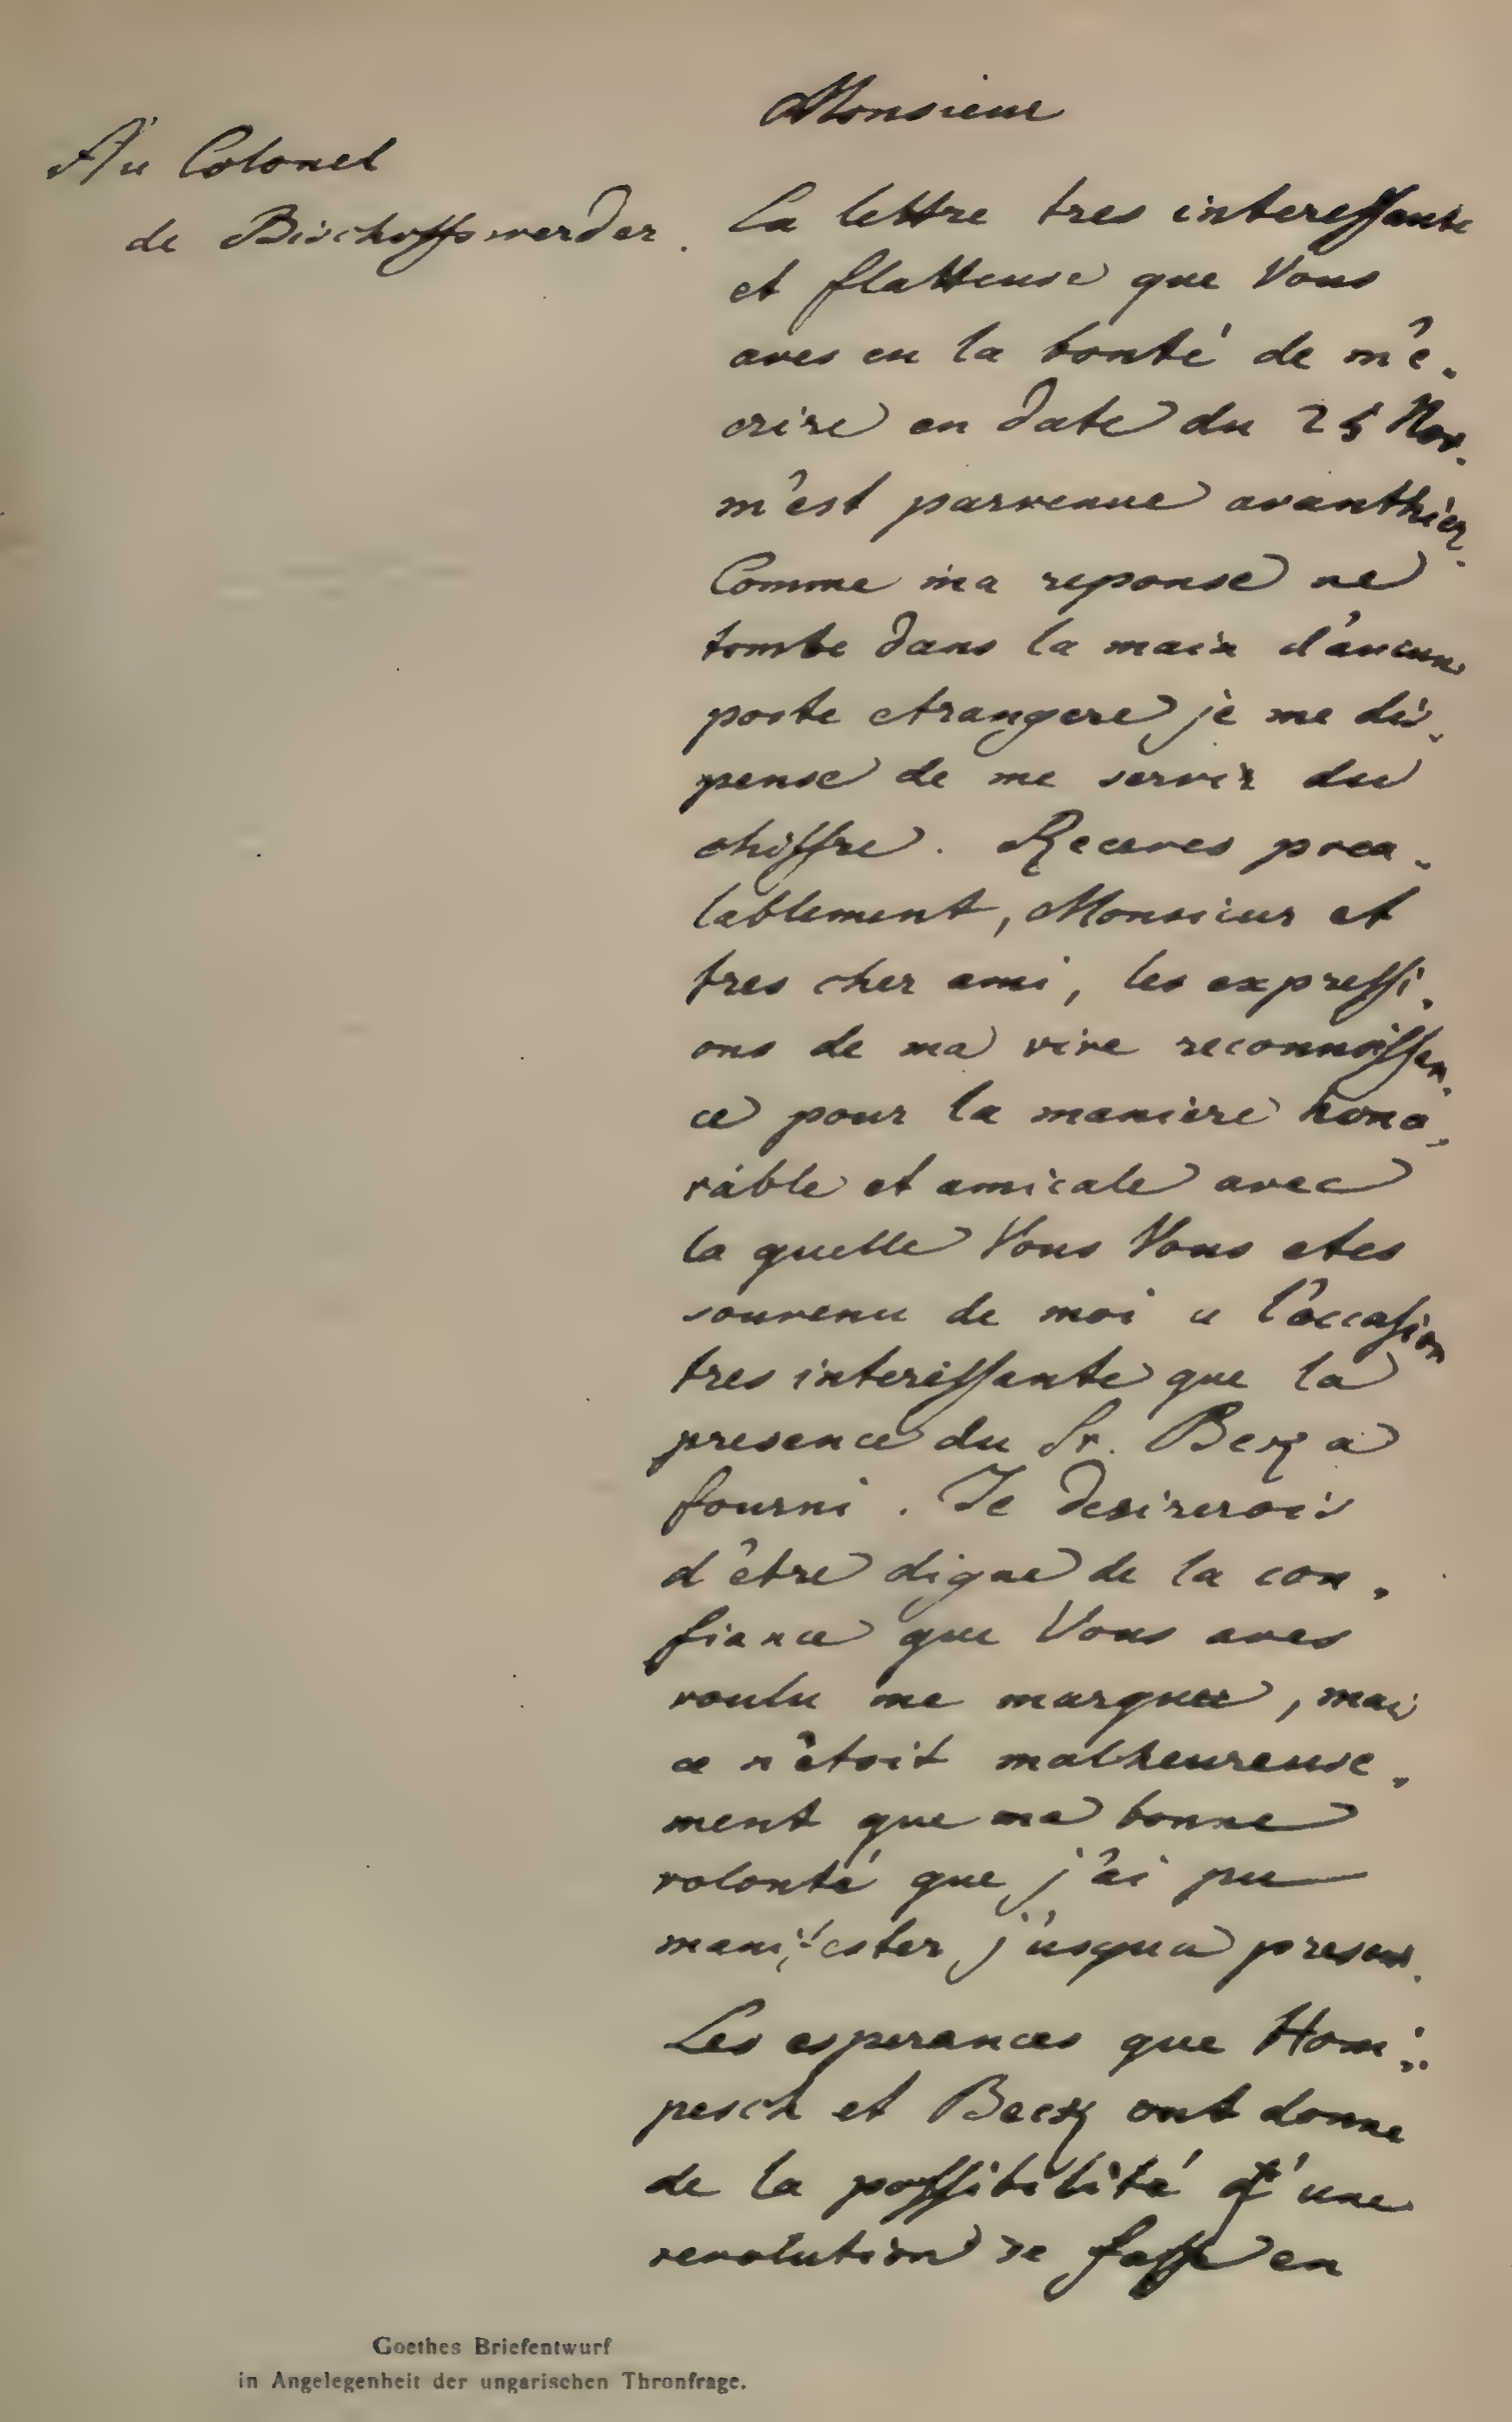 Monsieur
Au Colonel
de Bischoffswerder.
La lettre tres interessante
et flatteuse que Vous
aves eu la bonté de m'e-
crire en date du 25 Nov.
m'est parvenue avanthier.
Comme ma reponse ne
tombe dans la main d'aucune
poste etrangere je me dis-
pense de me servir du
chiffre. Receves prea-
lablement, Monsieur et
tres cher ami, les expressi-
ons de ma vive reconnoissen-
ce pour la maniere hono-
rable et amicale avec
la quelle Vous Vous etes
souvenu de moi a l'occasion
tres interessante que la
presence du Sr. Bez a
fourni. Je desirerois
d'être digne de la con-
fiance que Vous aves
voulu me marquer, mais
ce n'étoit malheureuse-
ment que ma bonne
volonté que j'ai pu
manifester j'usqu'a present.
Les esperances que Hom-
pesch et Beez ont donne
de la possibilité d'une
revolution se fasse en
Goethes Briefentwurf
in Angelegenheit der ungarischen Thronfrage.